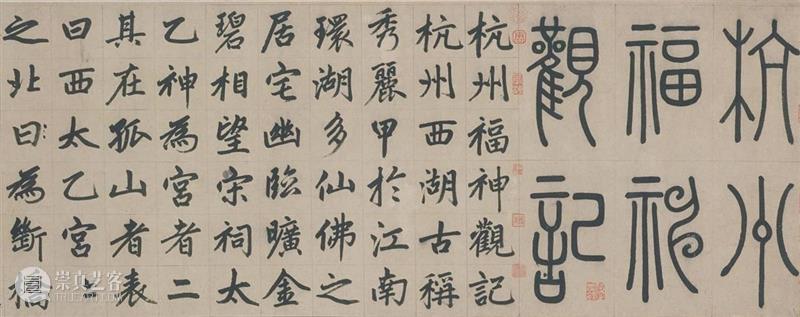 杭州
福神
觀記
杭州福神觀記
杭州西湖古稱
秀麗甲於江南
環湖多仙佛之
居宅幽臨曠金
碧相望宋祠太
乙神為宮者二
其在孤山者表
曰西太乙宮
之北曰為斷橋
崇真艺客